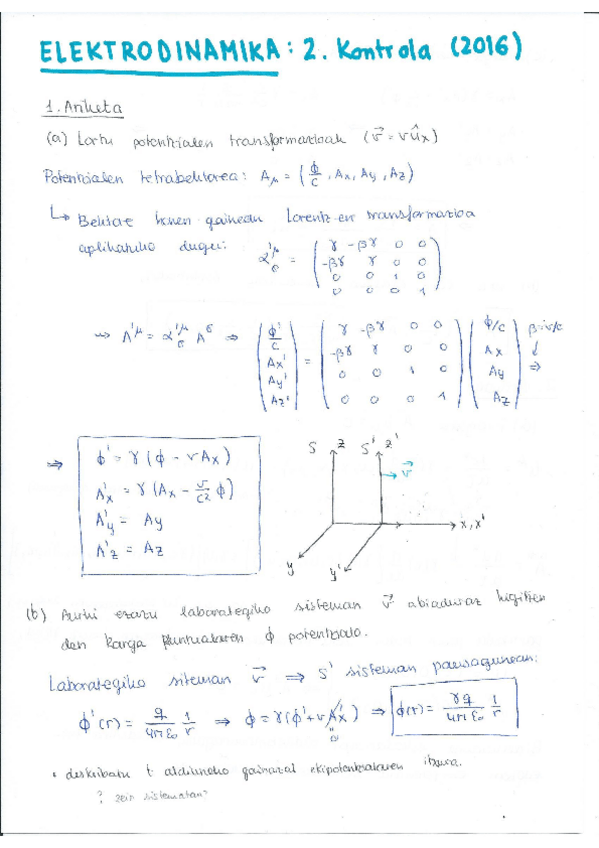 ELEKTRODINAMIKA: 2. Kontrola (2016)
1. Ariketa
(a) Lortu potentzialen transformazioak (v⃗ = v û_x)
Potentzialen tetrabektorea: A_μ = (ϕ/c, Ax, Ay, Az)
↳ Bektore honen gainean Lorentz-en transformazioa
aplikatuko dugu: α'^μ_σ = ( γ -βγ 0 0
-βγ γ 0 0
0 0 1 0
0 0 0 1 )
⇒ A'^μ = α'^μ_σ A^σ ⇒ ( ϕ'/c Ax' Ay' Az' ) = ( γ -βγ 0 0
-βγ γ 0 0
0 0 1 0
0 0 0 1 ) ( ϕ/c Ax Ay Az ) β=v/c ↓ ⇒
⇒ ϕ' = γ (ϕ - vAx)
A'x = γ (Ax - v/c² ϕ)
A'y = Ay
A'z = Az
S z S' z'
v⃗
x, x'
y y'
(b) Aurki ezazu laborategiko sisteman v⃗ abiaduraz higitzen
den karga puntualaren ϕ potentziala.
Laborategiko siteman v⃗ ⇒ S' sisteman pausagunean:
ϕ'(r) = q/4πε₀ 1/r ⇒ ϕ = γ(ϕ' + vAx') ⇒ ϕ(r) = γq/4πε₀ 1/r
0
• deskribatu t aldiuneko gainazal ekipotentzialaren itxura.
? zein sistematan?